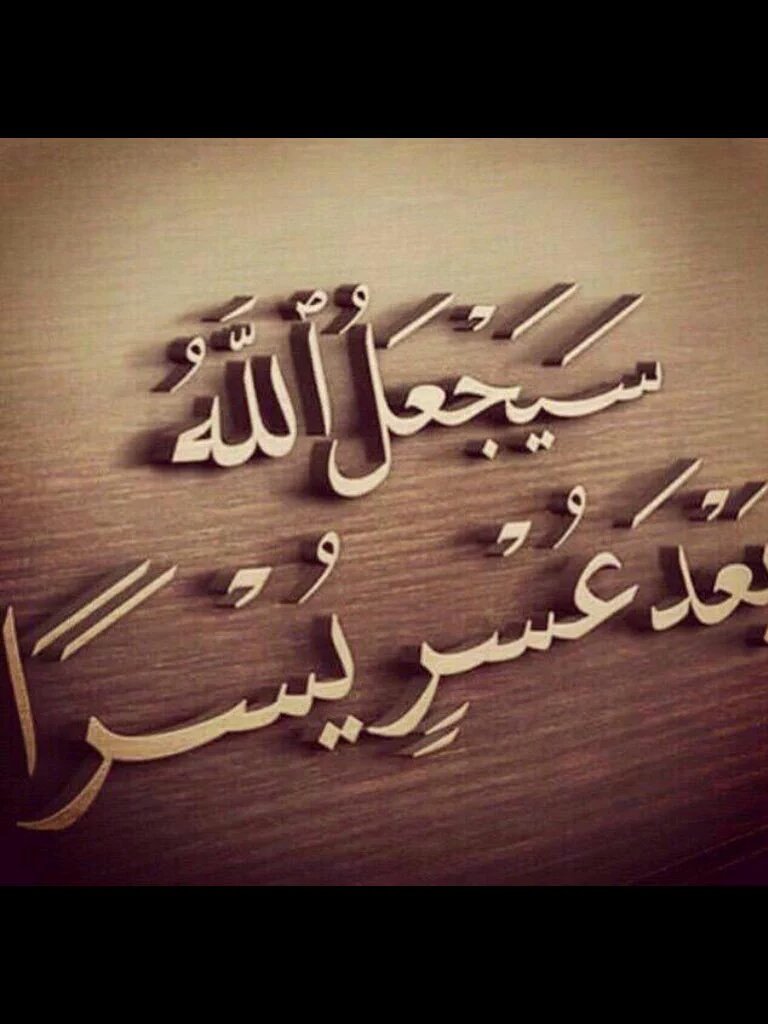 سَيَجْعَلُ ٱللَّهُ
بَعْدَ عُسْرٍ يُسْرًا